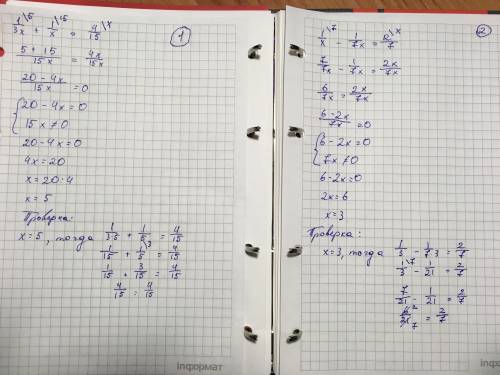 1
1/3x \5 + 1/x \15 = 4/15 \x
5 + 15/15x = 4x/15x
20 - 4x/15x = 0
{20 - 4x = 0
15x ≠ 0
20 - 4x = 0
4x = 20
x = 20 · 4
x = 5
Проверка:
x = 5, тогда 1/3·5 + 1/5 = 4/15
1/15 + 1/5 \3 = 4/15
1/15 + 3/15 = 4/15
4/15 = 4/15
2
1/x \7 - 1/7x = 2/7 \x
7/7x - 1/7x = 2x/7x
6/7x = 2x/7x
6 - 2x/7x = 0
{6 - 2x = 0
7x ≠ 0
6 - 2x = 0
2x = 6
x = 3
Проверка:
x = 3, тогда 1/3 - 1/7·3 = 2/7
1/3 \7 - 1/21 = 2/7
7/21 - 1/21 = 2/7
6 2/21 7 = 2/7
inформат
inформат